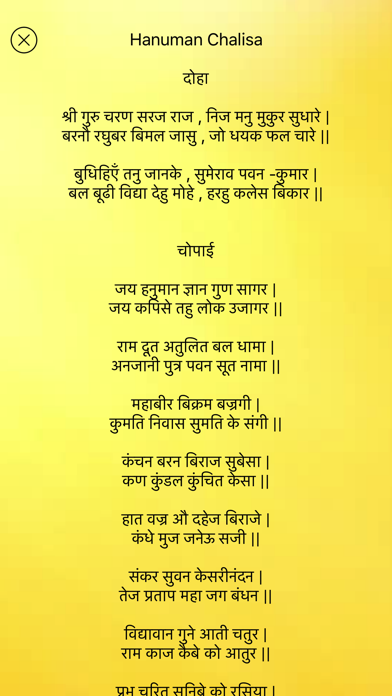 Hanuman Chalisa
दोहा
श्री गुरु चरण सरज राज , निज मनु मुकुर सुधारे |
बरनौ रघुबर बिमल जासु , जो धयक फल चारे ||
बुधिहिएँ तनु जानके , सुमेराव पवन -कुमार |
बल बूढी विद्या देहु मोहे , हरहु कलेस बिकार ||
चोपाई
जय हनुमान ज्ञान गुण सागर |
जय कपिसे तहु लोक उजागर ||
राम दूत अतुलित बल धामा |
अनजानी पुत्र पवन सूत नामा ||
महाबीर बिक्रम बज्रगी |
कुमति निवास सुमति के संगी ||
कंचन बरन बिराज सुबेसा |
कण कुंडल कुंचित केसा ||
हात वज्र औ दहेज बिराजे |
कंधे मुज जनेऊ सजी ||
संकर सुवन केसरीनंदन |
तेज प्रताप महा जग बंधन ||
विद्यावान गुने आती चतुर |
राम काज कैबे को आतुर ||
प्रभ चरित सुनिबे को रसिया |